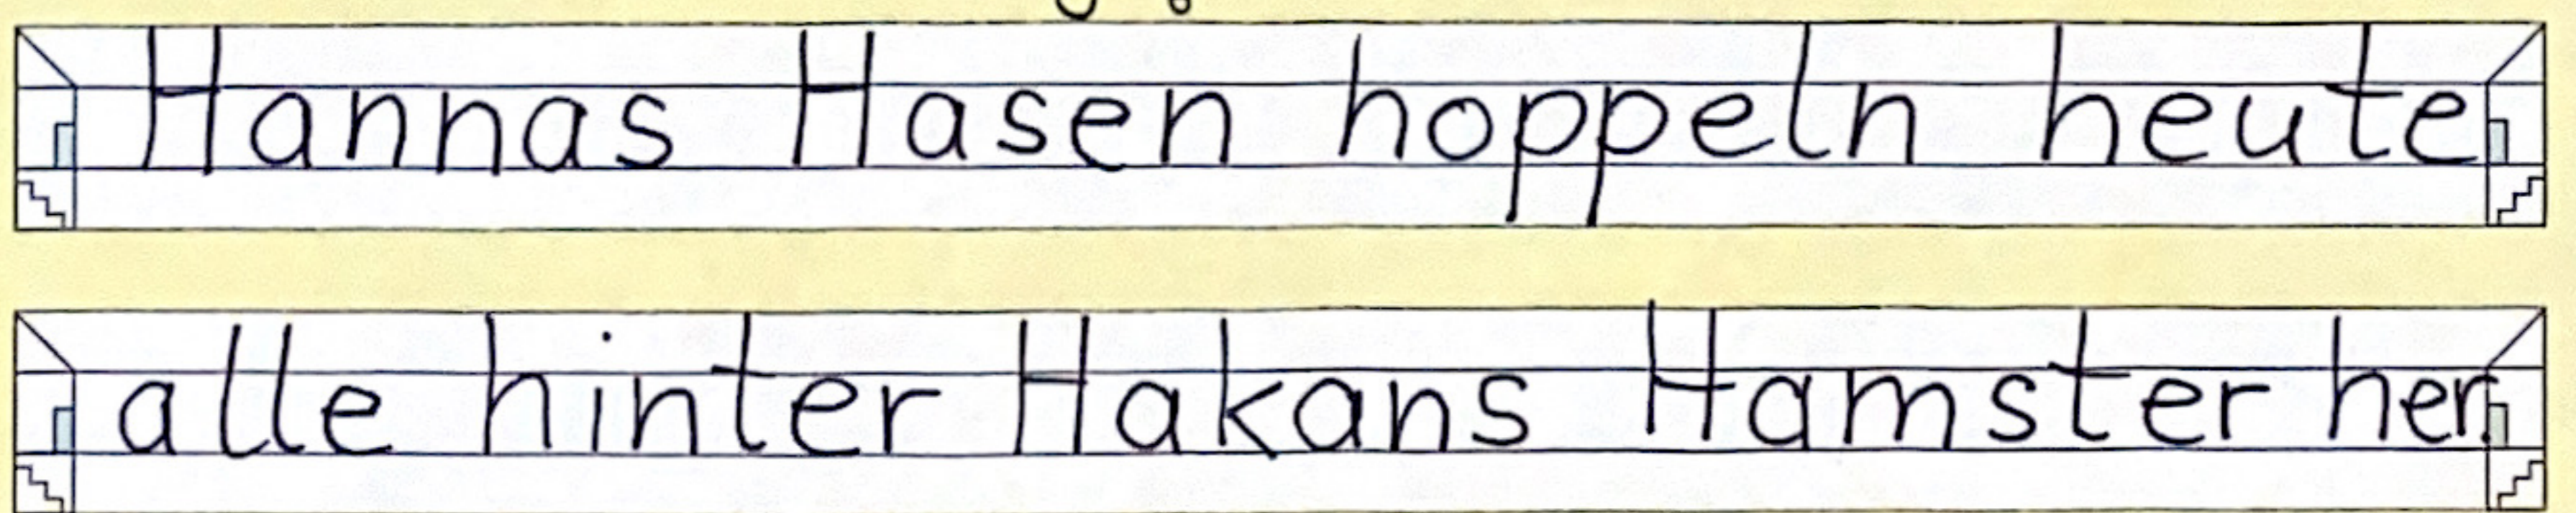 Hannas Hasen hoppeln heute
alle hinter Hakans Hamster her.